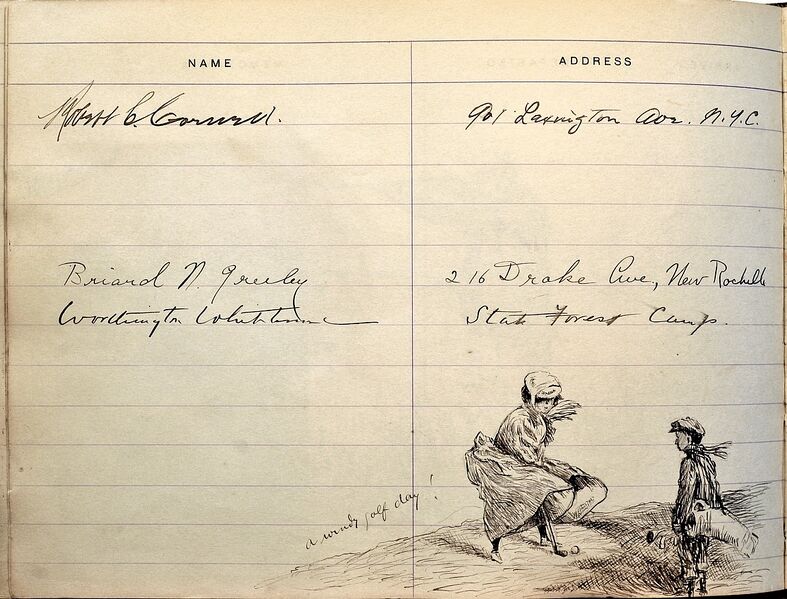 NAME ADDRESS
Robert C. Cornell. 901 Lexington Ave. N.Y.C.
Briard N. Greeley 216 Drake Ave, New Rochelle
Worthington Whittredge State Forest Camp.
a windy golf day!